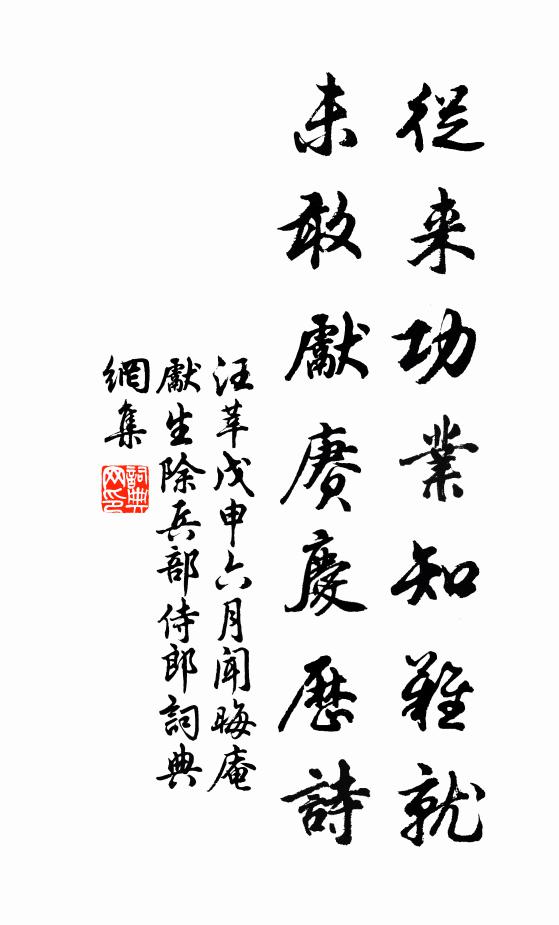 從来功業知難就
未敢獻賡慶歷詩
汪莘戊申六月聞晦庵
獻生除兵部侍郎詞典
網集
詞典网印